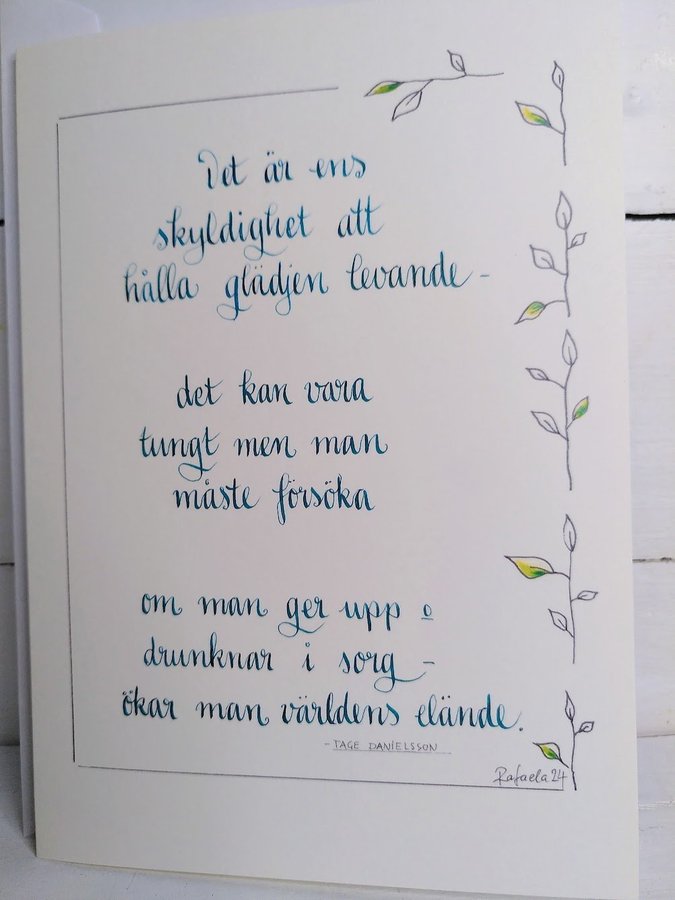 Det är ens
skyldighet att
hålla glädjen levande -
det kan vara
tungt men man
måste försöka
om man ger upp o
drunknar i sorg -
ökar man världens elände.
- TAGE DANIELSSON
Rafaela 24